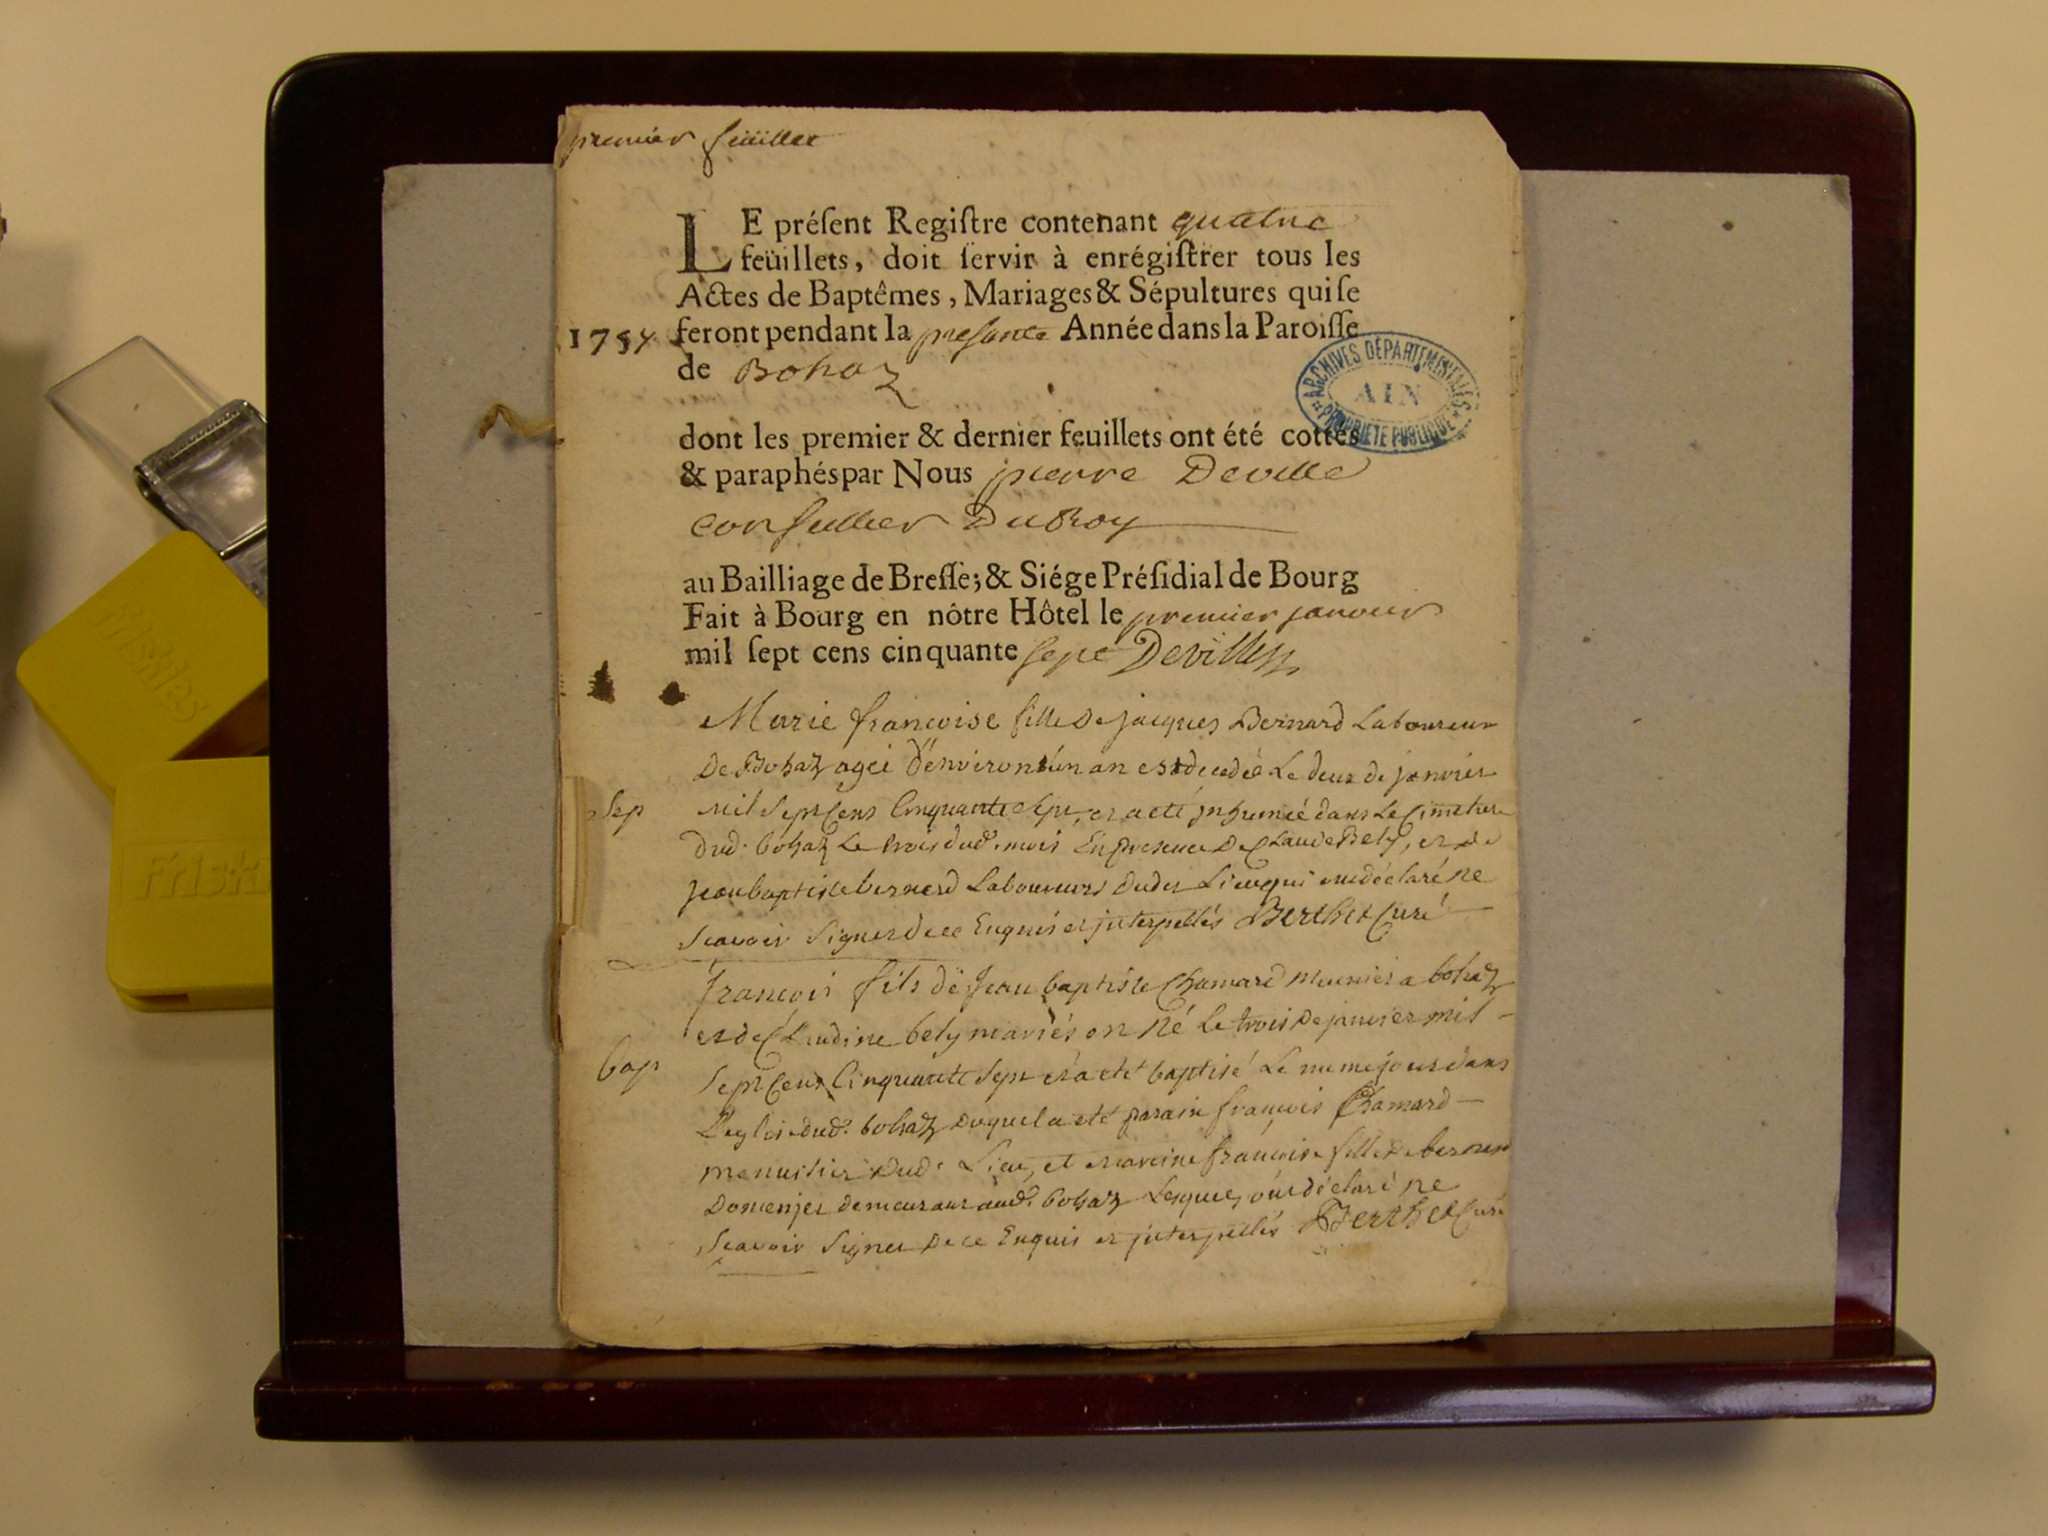 premier feüillet
LE préſent Regiſtre contenant quatre
feüillets, doit ſervir à enrégiſtrer tous les
Actes de Baptêmes, Mariages & Sépultures qui ſe
1757 feront pendant la presante Année dans la Paroiſſe
de Bohaz
ARCHIVES DÉPARTEMENTALES
AIN
PROPRIETE PUBLIQUE
dont les premier & dernier feuillets ont été cottés
& paraphés par Nous pierre Deville
conseiller Du Roy
au Bailliage de Breſſe; & Siége Préſidial de Bourg
Fait à Bourg en nôtre Hôtel le premier janvier
mil ſept cens cinquante sept Deville
Marie francoise fille De jacques Bernard Laboureur
De Bohaz ageé d'environ un an est decedeé Le deux de janvier
Sep mil sept Cens Cinquante sept, et a eté jnhumeé dans Le Cimetiere
Dud. bohaz Le trois dud. mois En presence De Claude Bely, et de
jean baptiste bernard Laboureurs dudit Lieu qui ont déclaré ne
scavoir signer de ce Enquis et jnterpellés Berthet Curé
francois fils de Jean baptiste Chamard meunier a bohaz
et de Claudine bely mariés est né Le trois De janvier mil
bap sept Cens Cinquante sept et a eté baptisé Le meme jour dans
L'eglise dud. bohaz duquel a eté parain françois Chamard
menusier Dud. Lieu, et maraine françoise fille De
Domenjer demeurant aud. bohaz Lesquels ont déclaré ne
scavoir signer De ce Enquis et jnterpellés Berthet Curé
Friskies
Friski